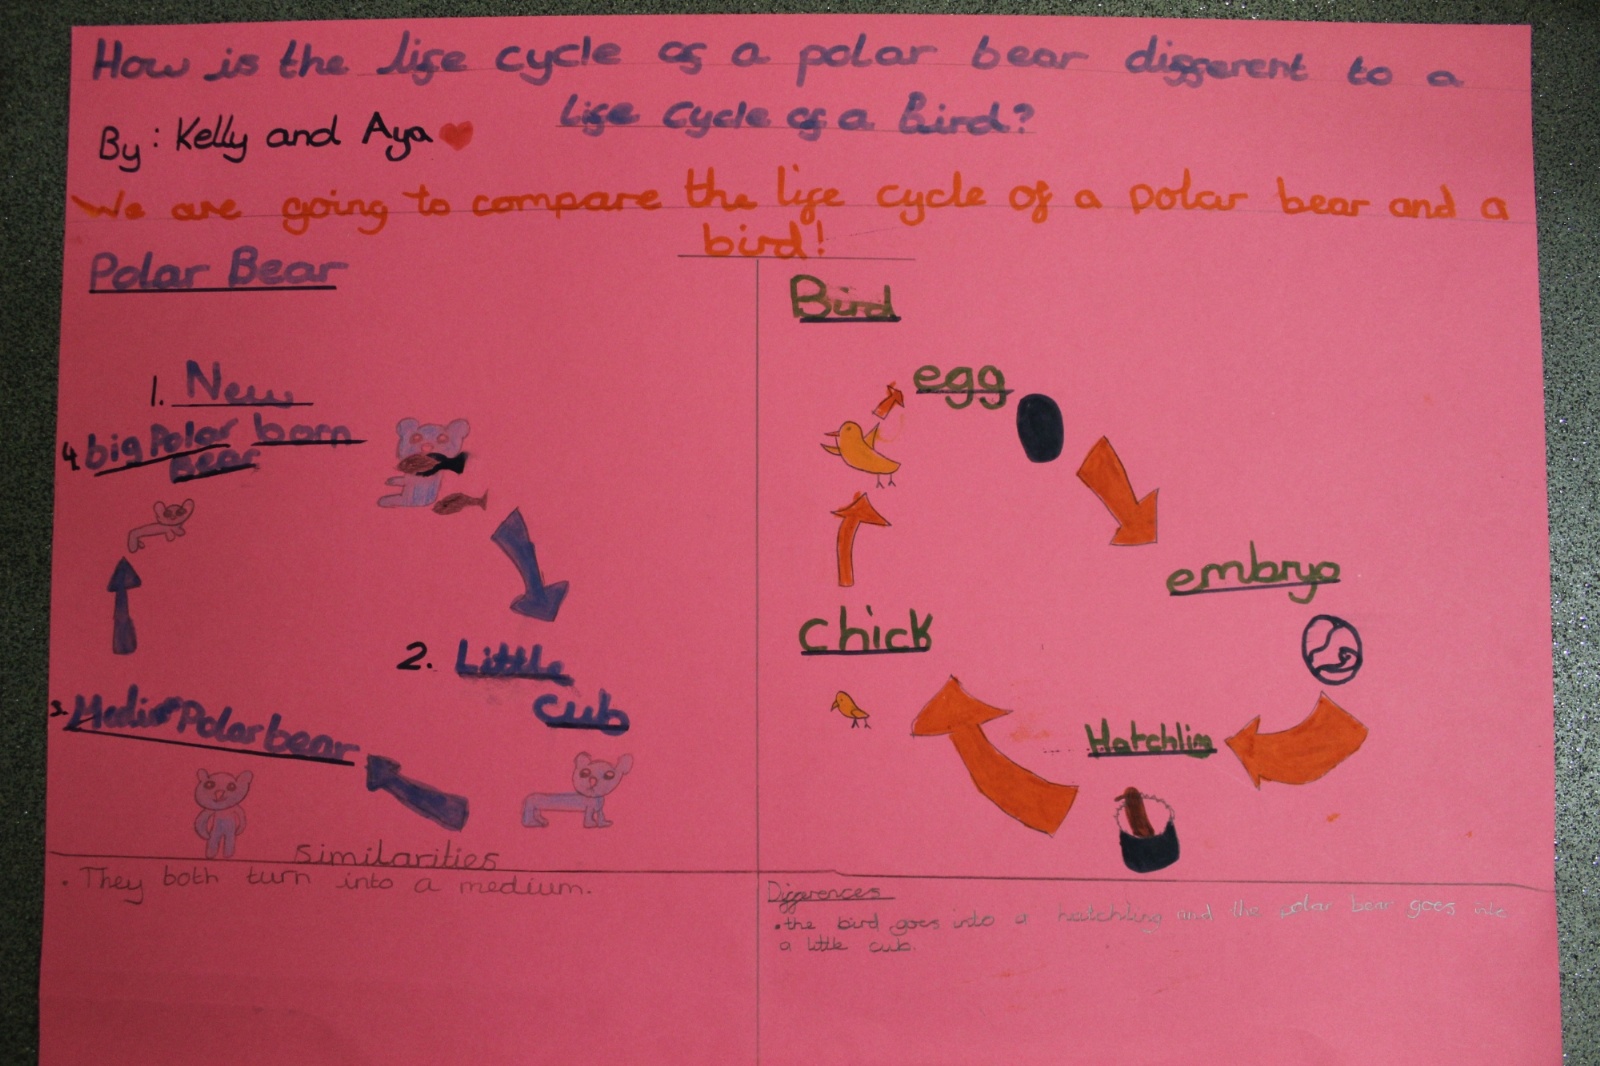 How is the life cycle of a polar bear different to a
life cycle of a Bird?
By: Kelly and Aya
We are going to compare the life cycle of a polar bear and a
bird!
Polar Bear
1. New
born
2. Little
cub
3. Medium Polar bear
4. big Polar
Bear
similarities
• They both turn into a medium.
Bird
egg
embryo
Hatchlin
chick
Differences
• the bird goes into a hatchling and the polar bear goes into
a little cub.